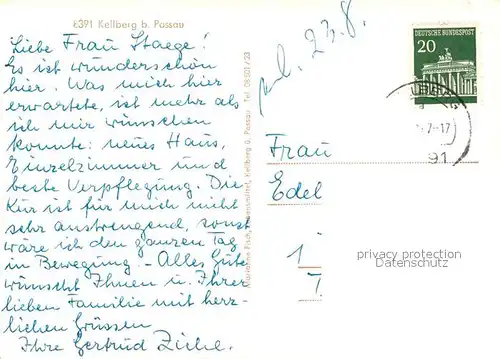 8391 Kellberg b. Passau
Liebe Frau Staege!
Es ist wunderschön
hier. Was mich hier
erwartete, ist mehr als
ich mir wünschen
konnte: neues Haus,
Einzelzimmer und
beste Verpflegung. Die
Kur ist für mich nicht
sehr anstrengend, sonst
wäre ich den ganzen Tag
in Bewegung. – Alles Gute
wünscht Ihnen u. Ihrer
lieben Familie mit herz-
lichen Grüssen
Ihre Gertrud
23.8.
DEUTSCHE BUNDESPOST
20
-7-17
91
Frau
Edel
1
privacy protection
Datenschutz
Kellberg b. Passau Tel. 08501/23